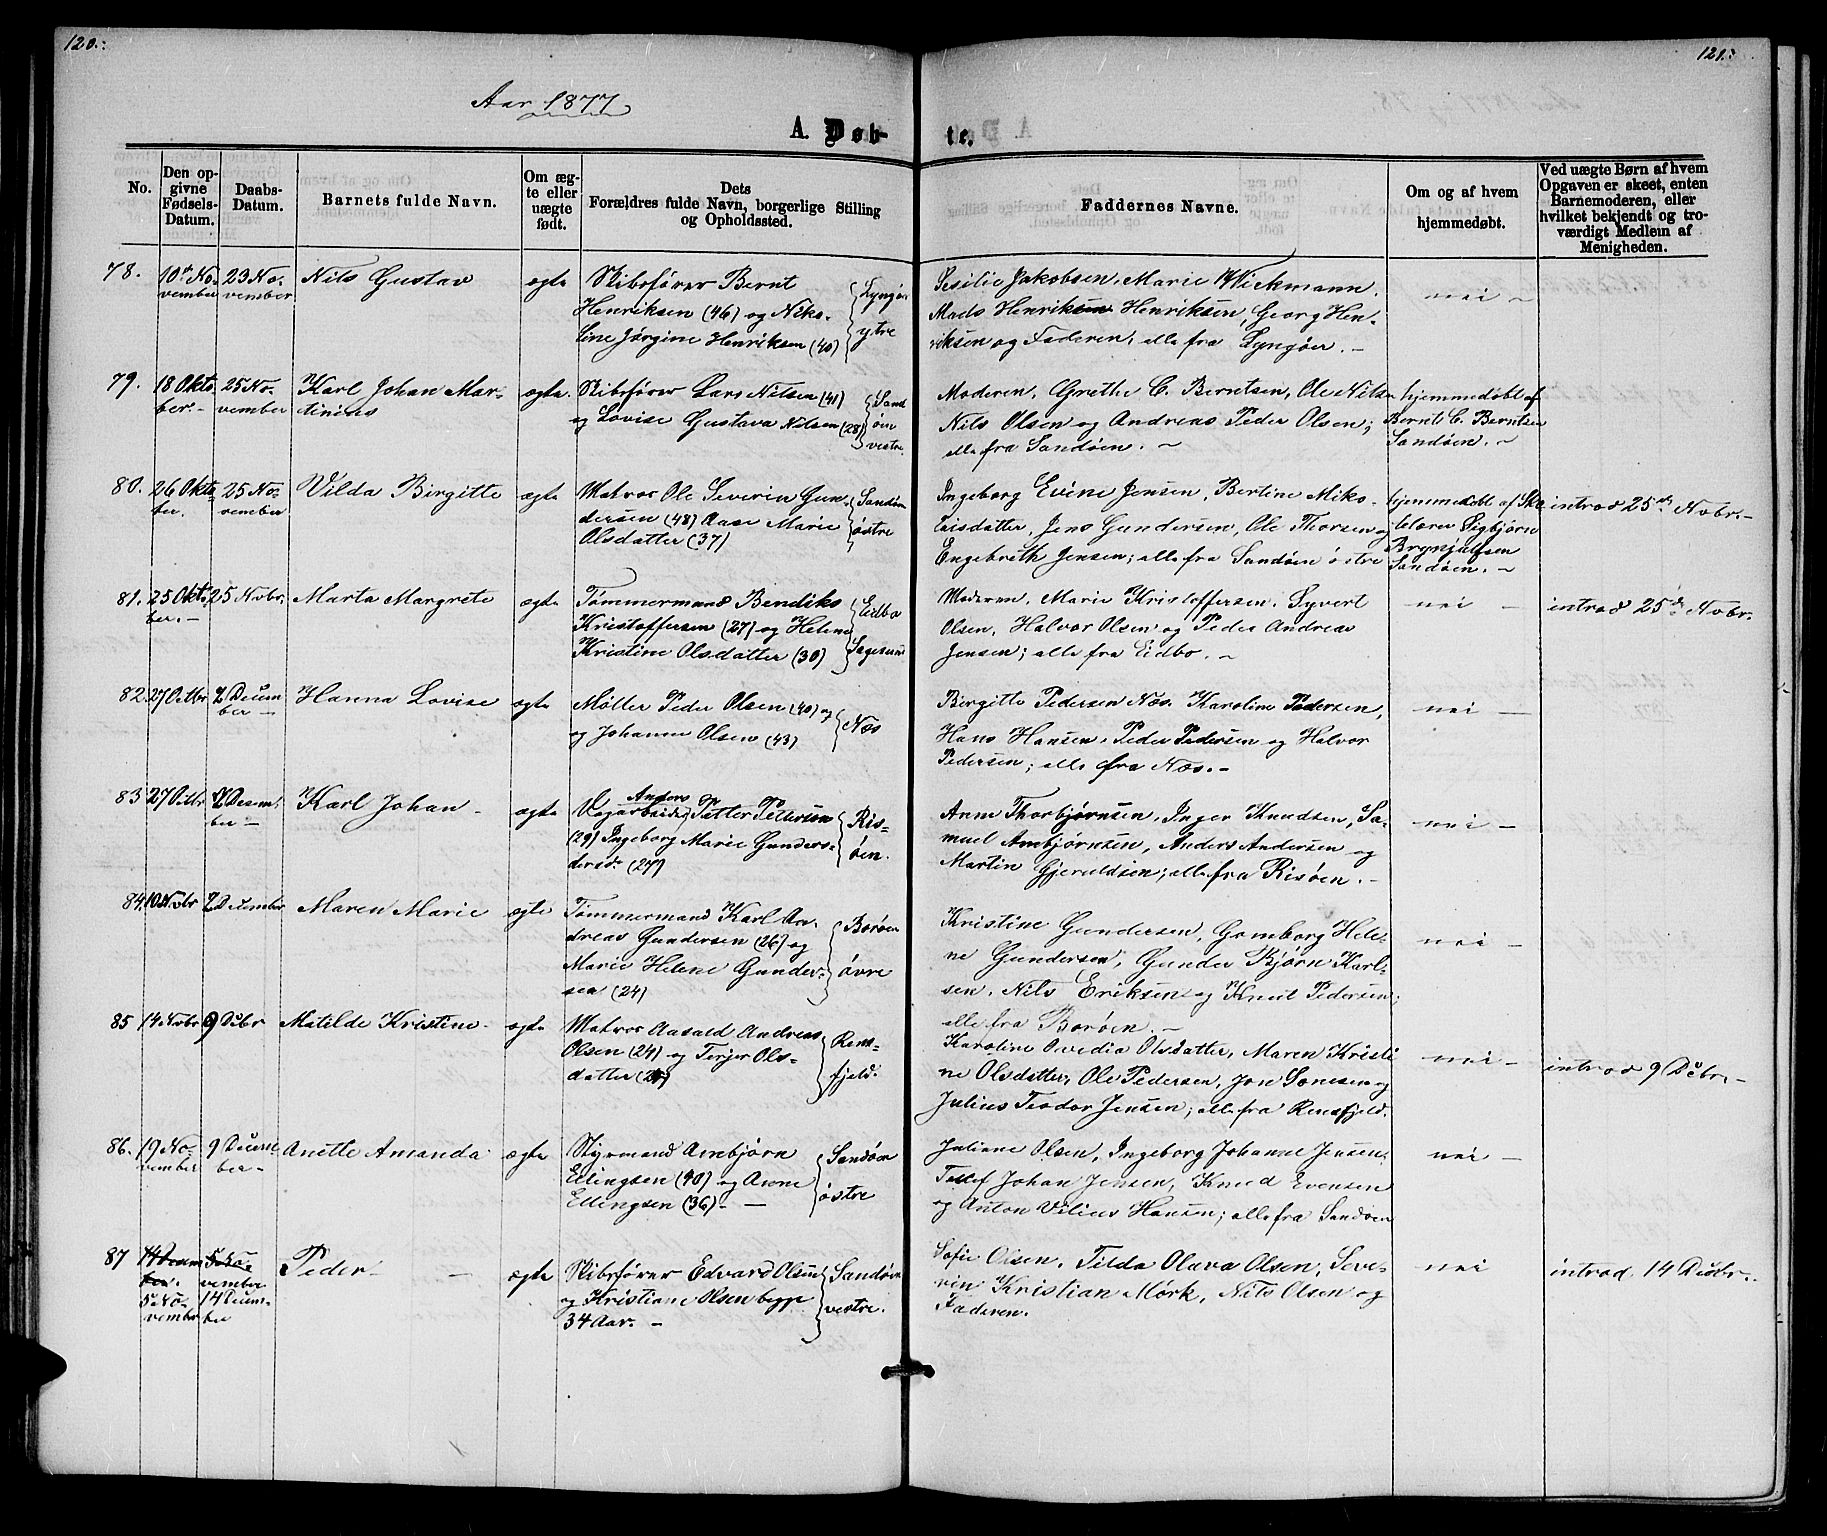 120.
121.
Aar 1877
A. Døb-
te.
No.
Den op-
givne
Fødsels-
Datum.
Daabs-
Datum.
Barnets fulde Navn.
Om æg-
te eller
uægte
født.
Dets
Forældres fulde Navn, borgerlige Stilling
og Opholdssted.
Faddernes Navne.
Om og af hvem
hjemmedøbt.
Ved uægte Børn af hvem
Opgaven er skeet, enten
Barnemoderen, eller
hvilket bekjendt og tro-
værdigt Medlem af
Menigheden.
78. 10de No- 23 No- Nils Gustav ægte Skibsfører Bernt Lyngør
vember vember Henriksen (46) og Niko-
line Jørgine Henriksen (40) ytre
Sesilie Jakobsen, Marie Wickmann,
Mads Henriksen Henriksen, Georg Hen-
riksen og Faderen, alle fra Lyngøer. -
nei -
79. 18 Okto- 25 No- Karl Johan Mar- ægte. Skibsfører Lars Nilsen (41) Sand
ber.- vember tinius og Lovise Gustava Nilsen (28) øen
vestre.
Moderen, Grethe C. Berntsen, Ole Nilsen
Nils Olsen og Andreas Peder Olsen;
alle fra Sandøen. -
hjemmedøbt af
Bernt C. Berntsen
Sandøen. -
80. 26 Okto- 25 No- Vilda Birgitte ægte Matros Ole Severin Gun- Sandøen
ber. vember dersen (48) Aase Marie østre
Olsdatter (37)
Ingeborg Eline Jensen, Bertine Niko-
laisdatter, Jens Gundersen, Ole Thorsen og
Engebreth Jensen; alle fra Sandøen østre
hjemmedøbt af Sko-
lelærer Sigbjørn
Brynjulfsen
Sandøen. -
introd 25de Nvbr.-
81. 25 Okto- 25 Nvbr. Marta Margrete ægte Tømmermand Bendiks Eidbo
ber.- Kristoffersen (27) og Helene
Kristine Olsdatter (30) Sagesund
Moderen, Marie Kristoffersen, Syvert
Olsen, Halvor Olsen og Peder Andreas
Jensen; alle fra Eidbo. -
nei -
introd 25de Nvbr.
82. 27 Octbr 2 Decem- Hanna Lovise ægte Møller Peder Olsen (40) og Næs
ber - og Johanne Olsen (43)
Birgitte Pedersen Næs. Karoline Pedersen,
Hans Hansen, Peder Pedersen og Halvor
Pedersen; alle fra Næs.-
nei -
83 27 Octbr 2 Desem- Karl Johan - ægte Anders
ber - Petter Pettersen Ris-
(29) Ingeborg Marie Gunders- øen.
dersd. (27)
Anne Thorbjørnsen, Inger Knudsen, Sa-
muel Ambjørnsen, Anders Andersen og
Martin Gjeruldsen; alle fra Risøen. -
nei -
84. 10 Nvbr 2 December Maren Marie ægte Tømmermand Karl An- Borøen
dreas Gundersen (26) og
Marie Helene Gunder- øvre
sen (24)
Kristine Gundersen, Gomborg Hele-
ne Gundersen, Gunder Bjørn Karl-
sen, Nils Eriksen og Knut Pedersen;
alle fra Borøen. -
nei -
85 14 Nvbr 9 Dcbr Matilde Kristine - ægte Matros Aasald Andreas Rens-
Olsen (24) og Terjer Ols- fjeld.
datter
Karoline Ovedia Olsdatter, Maren Kristi
ne Olsdatter, Ole Pedersen, Jon Sønesen og
Julius Teodor Jensen; alle fra Rensfjeld.
nei -
introd 9 Dcbr.-
86. 19 No- 9 Decem- Anette Amanda ægte Styrmand Ambjørn Sandøen
vember ber- Ellingsen (40) og Anne
Ellingsen (36) - østre
Juliane Olsen, Ingeborg Johanne Jensen,
Tellef Johan Jensen, Knud Evensen
og Anton Vilius Hansen; alle fra Sandøen
nei -
87 14 Decem 5 No- Peder - ægte Skibsfører Edvard Olsen Sandøen
ber. vember og Kristiane Olsen begge vestre.
5 No- 14 Decem- 34 Aar. -
vember ber
Sofie Olsen, Tilda Olava Olsen, Seve-
rin Kristian Mørk, Nils Olsen og
Faderen.
nei
introd. 14 Decbr.